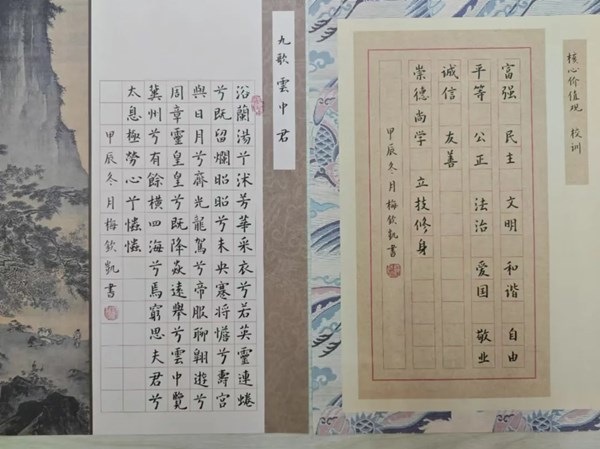 核心价值观 校训
富强 民主 文明 和谐 自由
平等 公正 法治 爱国 敬业
诚信 友善
崇德尚学 立技修身
甲辰冬月梅欽凯書
九歌 雲中君
浴蘭湯兮沐芳華采衣兮若英靈連蜷
兮既留爛昭昭兮未央蹇將憺兮壽宮
與日月兮齊光龍駕兮帝服聊翱遊兮
周章靈皇皇兮既降猋遠舉兮雲中覽
冀州兮有餘橫四海兮焉窮思夫君兮
太息極勞心兮
甲辰冬月梅欽凱書